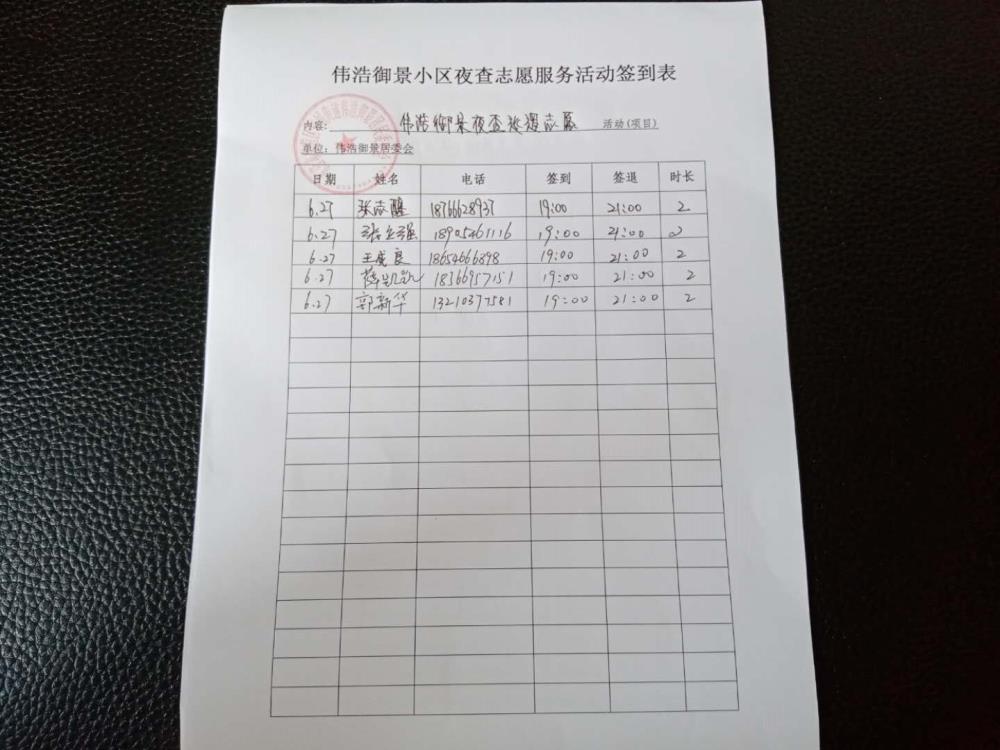 伟浩御景小区夜查志愿服务活动签到表
内容: 伟浩御景夜查巡逻志愿 活动(项目)
单位: 伟浩御景居委会
日期 姓名 电话 签到 签退 时长
6.27 张志 18766628937 19:00 21:00 2
6.27 强 18905461116 19:00 21:00 2
6.27 王成良 18654666898 19:00 21:00 2
6.27 薛凯凯 18366957151 19:00 21:00 2
6.27 郭新华 13210377581 19:00 21:00 2